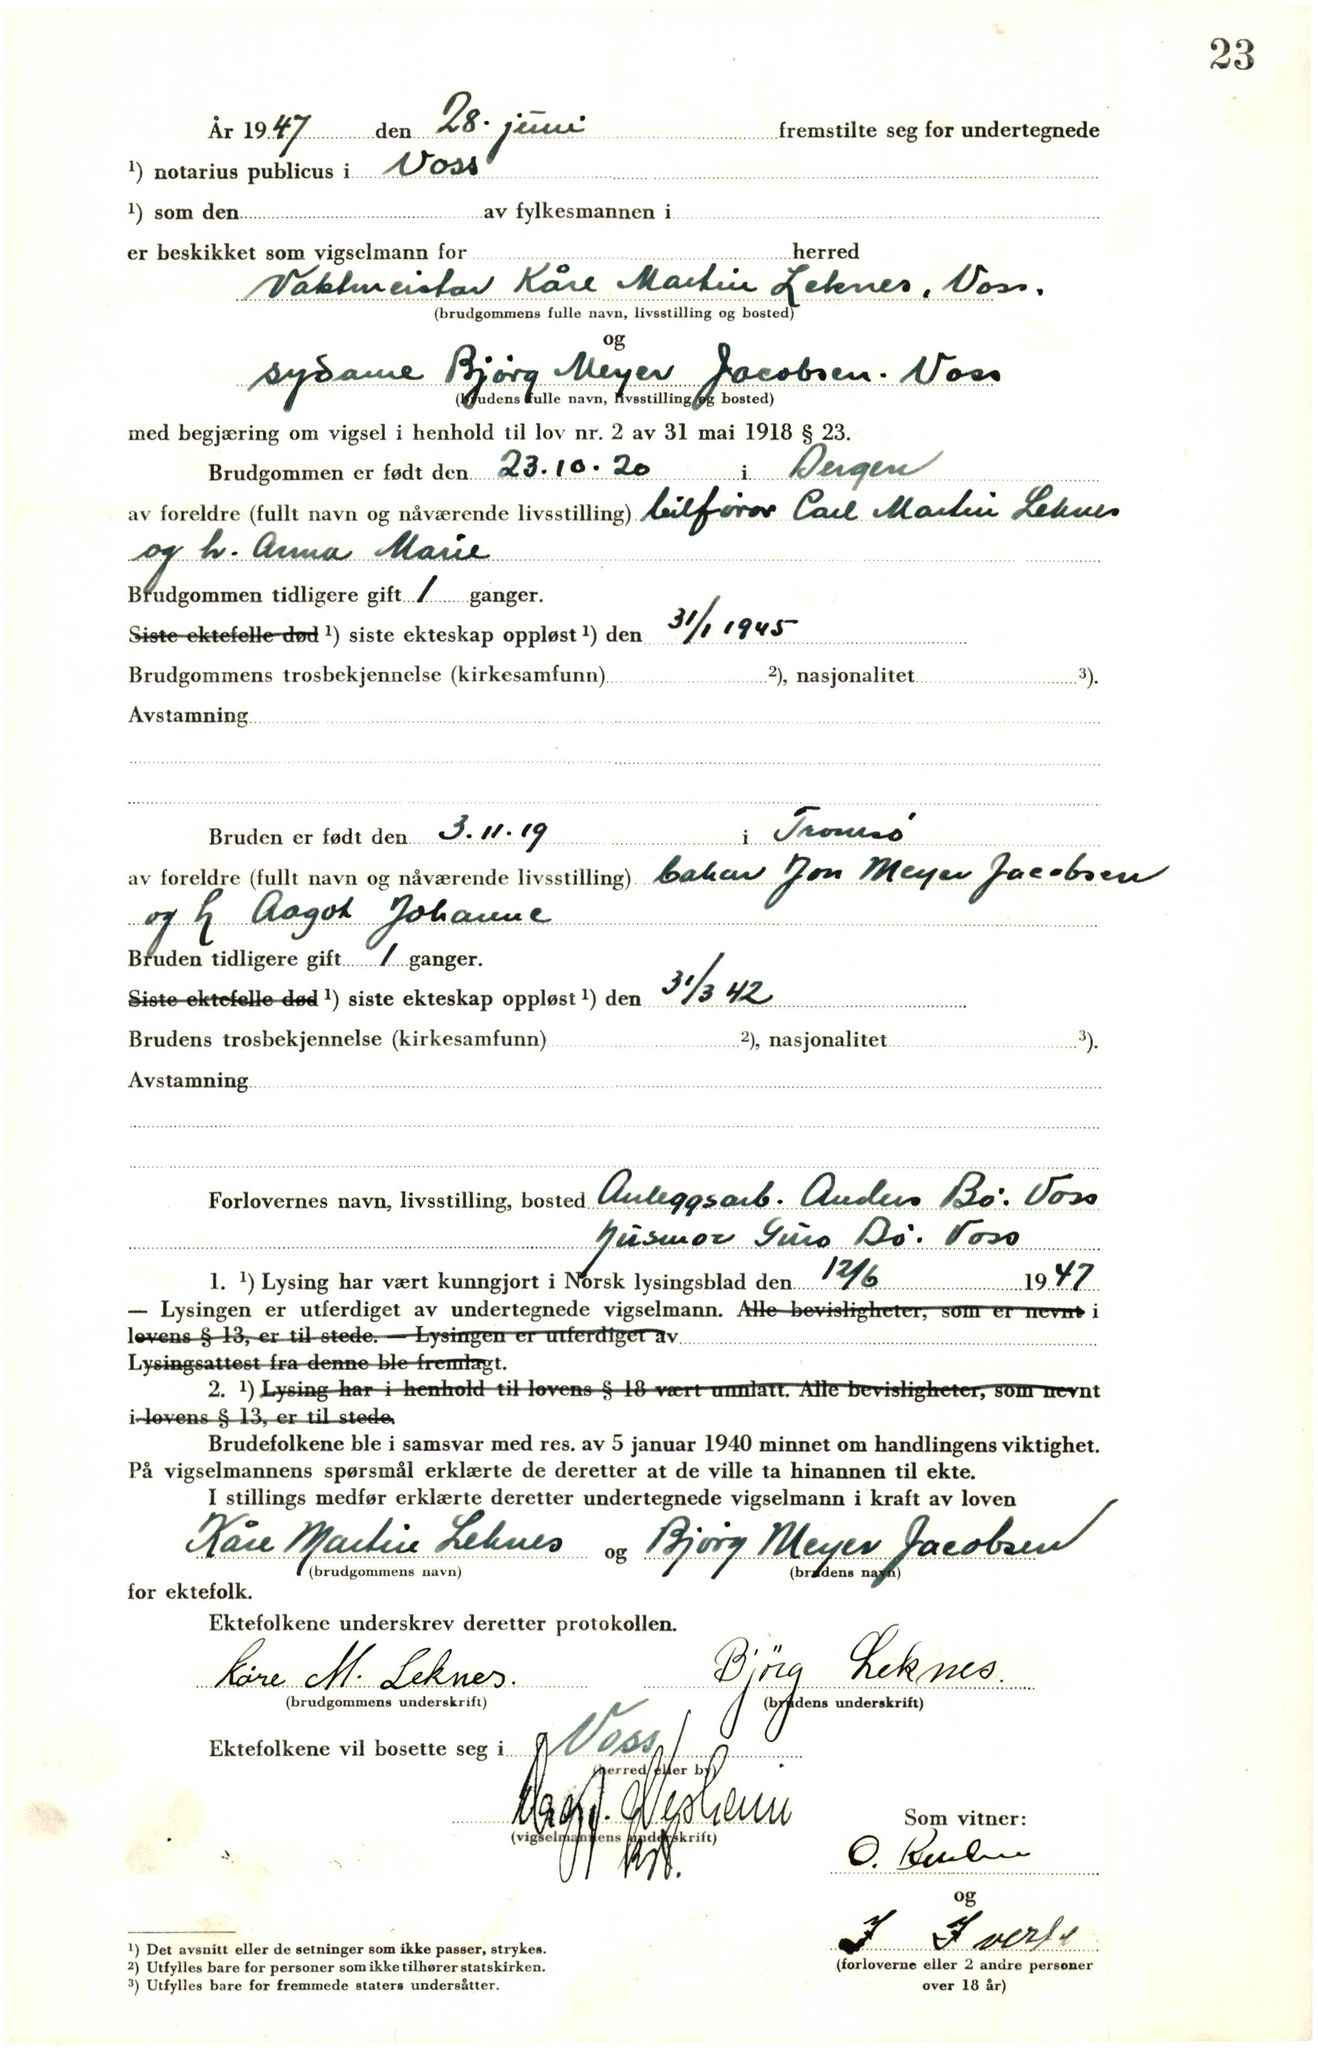 23
År 1947 den 28. juni fremstilte seg for undertegnede
¹) notarius publicus i Voss
¹) som den av fylkesmannen i
er beskikket som vigselmann for herred
Vaktmeister Kåre Martin Leknes, Voss.
(brudgommens fulle navn, livsstilling og bosted)
og
sydame Bjørg Meyer Jacobsen. Voss
(brudens fulle navn, livsstilling og bosted)
med begjæring om vigsel i henhold til lov nr. 2 av 31 mai 1918 § 23.
Brudgommen er født den 23.10.20 i Bergen
av foreldre (fullt navn og nåværende livsstilling) bilførar Carl Martin Leknes
og h. Anna Marie
Brudgommen tidligere gift 1 ganger.
Siste ektefelle død ¹) siste ekteskap oppløst ¹) den 31/1 1945
Brudgommens trosbekjennelse (kirkesamfunn) ²), nasjonalitet ³).
Avstamning
Bruden er født den 3.11.19 i Tromsø
av foreldre (fullt navn og nåværende livsstilling) bakar Jon Meyer Jacobsen
og h Aagot Johanne
Bruden tidligere gift 1 ganger.
Siste ektefelle død ¹) siste ekteskap oppløst ¹) den 31/3 42
Brudens trosbekjennelse (kirkesamfunn) ²), nasjonalitet ³).
Avstamning
Forlovernes navn, livsstilling, bosted Anleggsarb. Anders Bø. Voss
Husmor Guro Bø. Voss
1. ¹) Lysing har vært kunngjort i Norsk lysingsblad den 12/6 1947
— Lysingen er utferdiget av undertegnede vigselmann. Alle bevisligheter, som er nevnt i
lovens § 13, er til stede. — Lysingen er utferdiget av
Lysingsattest fra denne ble fremlagt.
2. ¹) Lysing har i henhold til lovens § 18 vært unnlatt. Alle bevisligheter, som nevnt
i lovens § 13, er til stede.
Brudefolkene ble i samsvar med res. av 5 januar 1940 minnet om handlingens viktighet.
På vigselmannens spørsmål erklærte de deretter at de ville ta hinannen til ekte.
I stillings medfør erklærte deretter undertegnede vigselmann i kraft av loven
Kåre Martin Leknes og Bjørg Meyer Jacobsen
(brudgommens navn) (brudens navn)
for ektefolk.
Ektefolkene underskrev deretter protokollen.
Kåre M. Leknes. Björg Leknes.
(brudgommens underskrift) (brudens underskrift)
Ektefolkene vil bosette seg i Voss
(herred eller by)
(vigselmannens underskrift)
Som vitner:
O.
og
I
(forloverne eller 2 andre personer
over 18 år)
¹) Det avsnitt eller de setninger som ikke passer, strykes.
²) Utfylles bare for personer som ikke tilhører statskirken.
³) Utfylles bare for fremmede staters undersåtter.